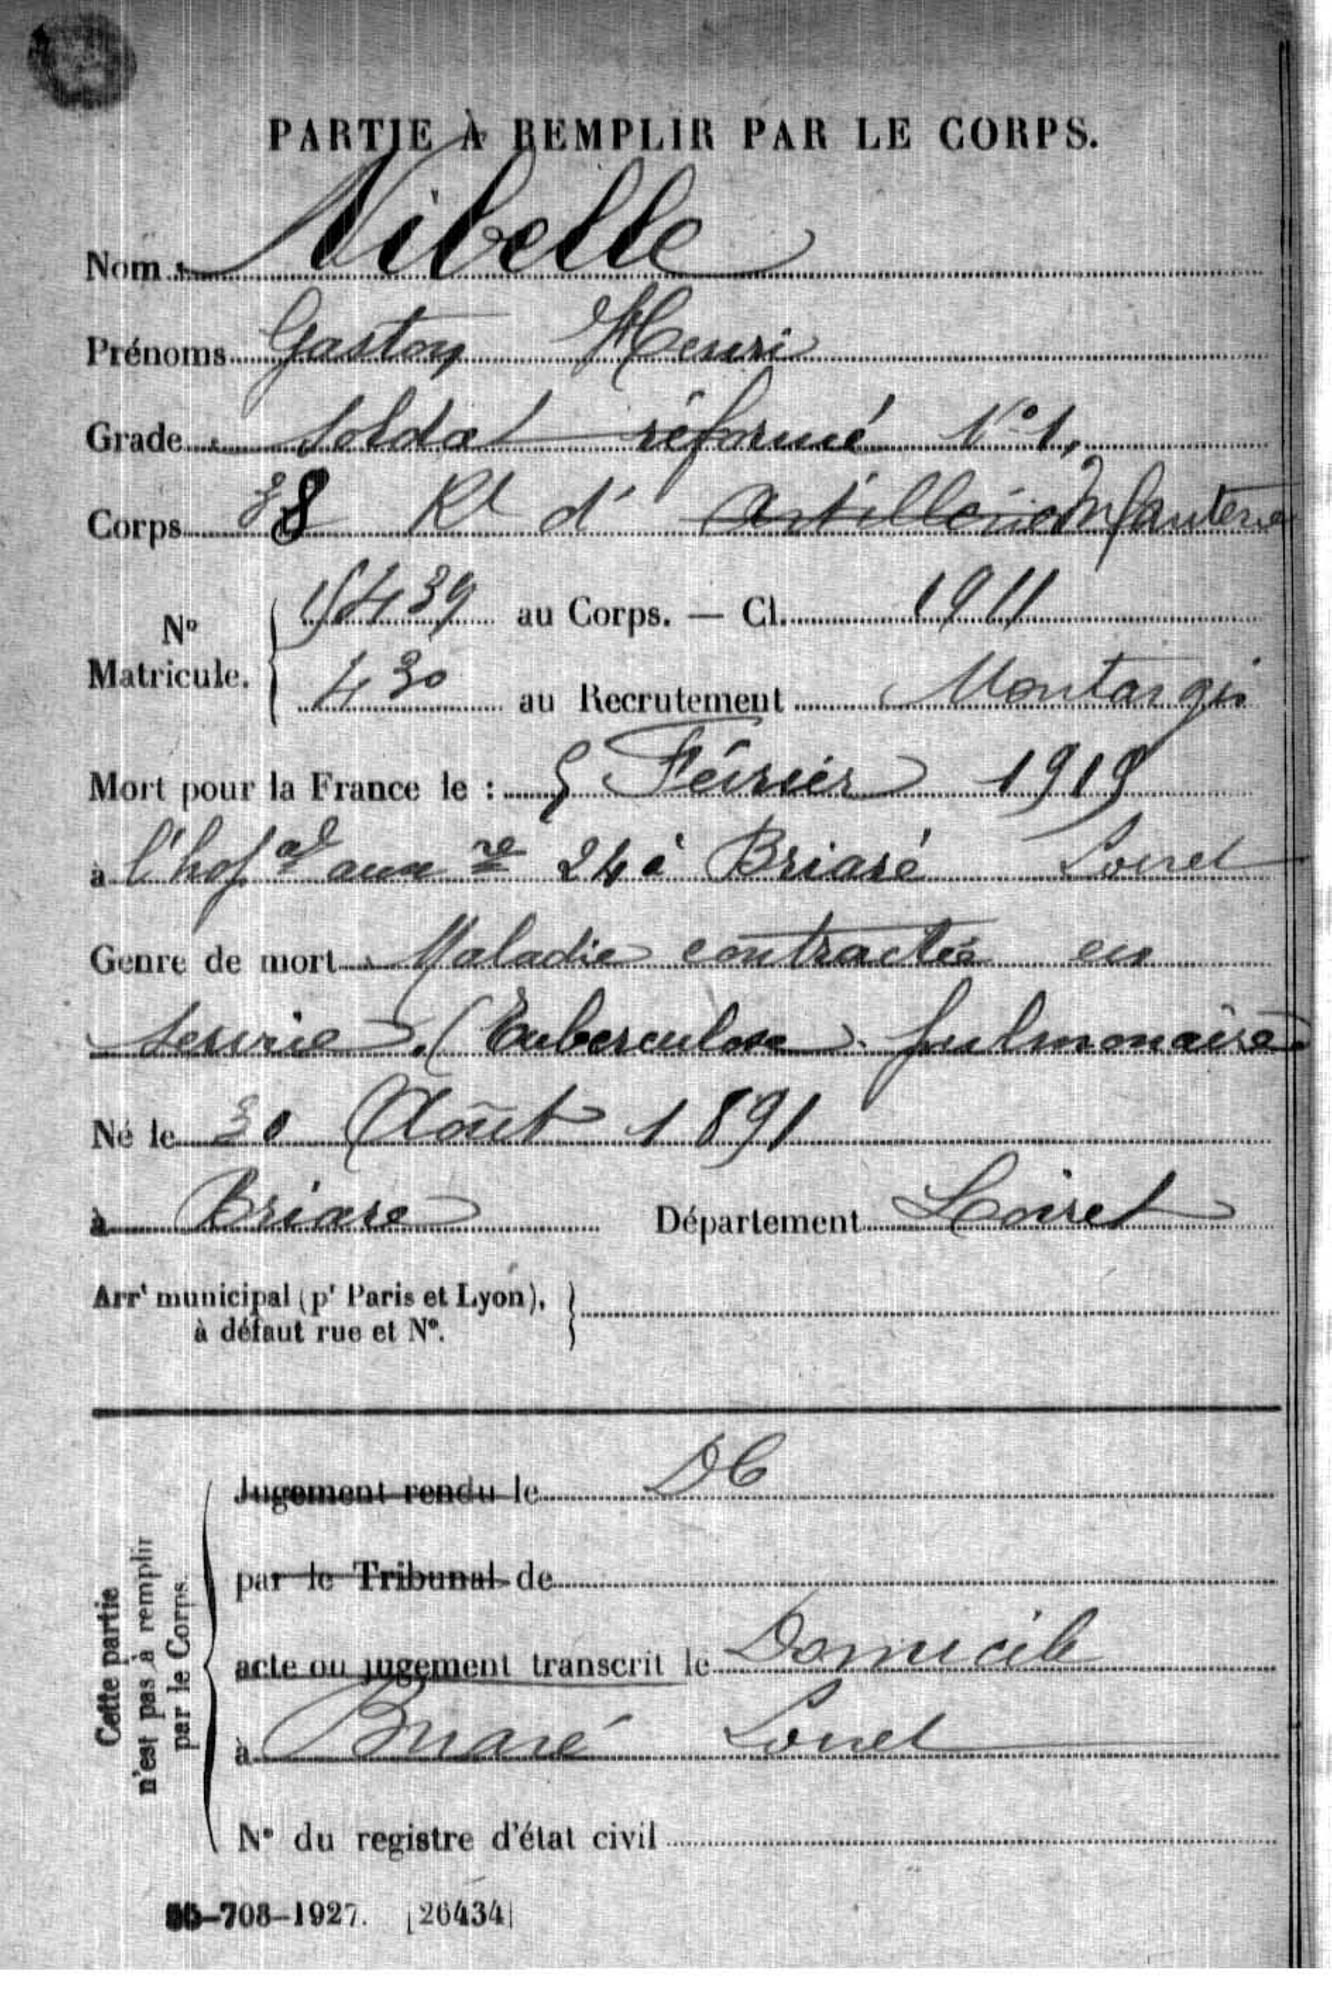 PARTIE À REMPLIR PAR LE CORPS.
Nom Nibelle
Prénoms Gaston Henri
Grade Soldat réformé N°1
Corps 38 Rt d' Artillerie Infanterie
N° Matricule. 15439 au Corps. — Cl. 1911
430 au Recrutement Montargis
Mort pour la France le : 5 Février 1919
à l'hopal auxre 24 à Briare Loiret
Genre de mort Maladie contractée en
service. (Tuberculose pulmonaire)
Né le 30 Août 1891
à Briare Département Loiret
Arrt municipal (pr Paris et Lyon),
à défaut rue et N°.
Cette partie
n'est pas à remplir
par le Corps.
Jugement rendu le DC
par le Tribunal de
acte ou jugement transcrit le Domicile
à Briaré Loiret
N° du registre d'état civil
-708-1927. [26434]